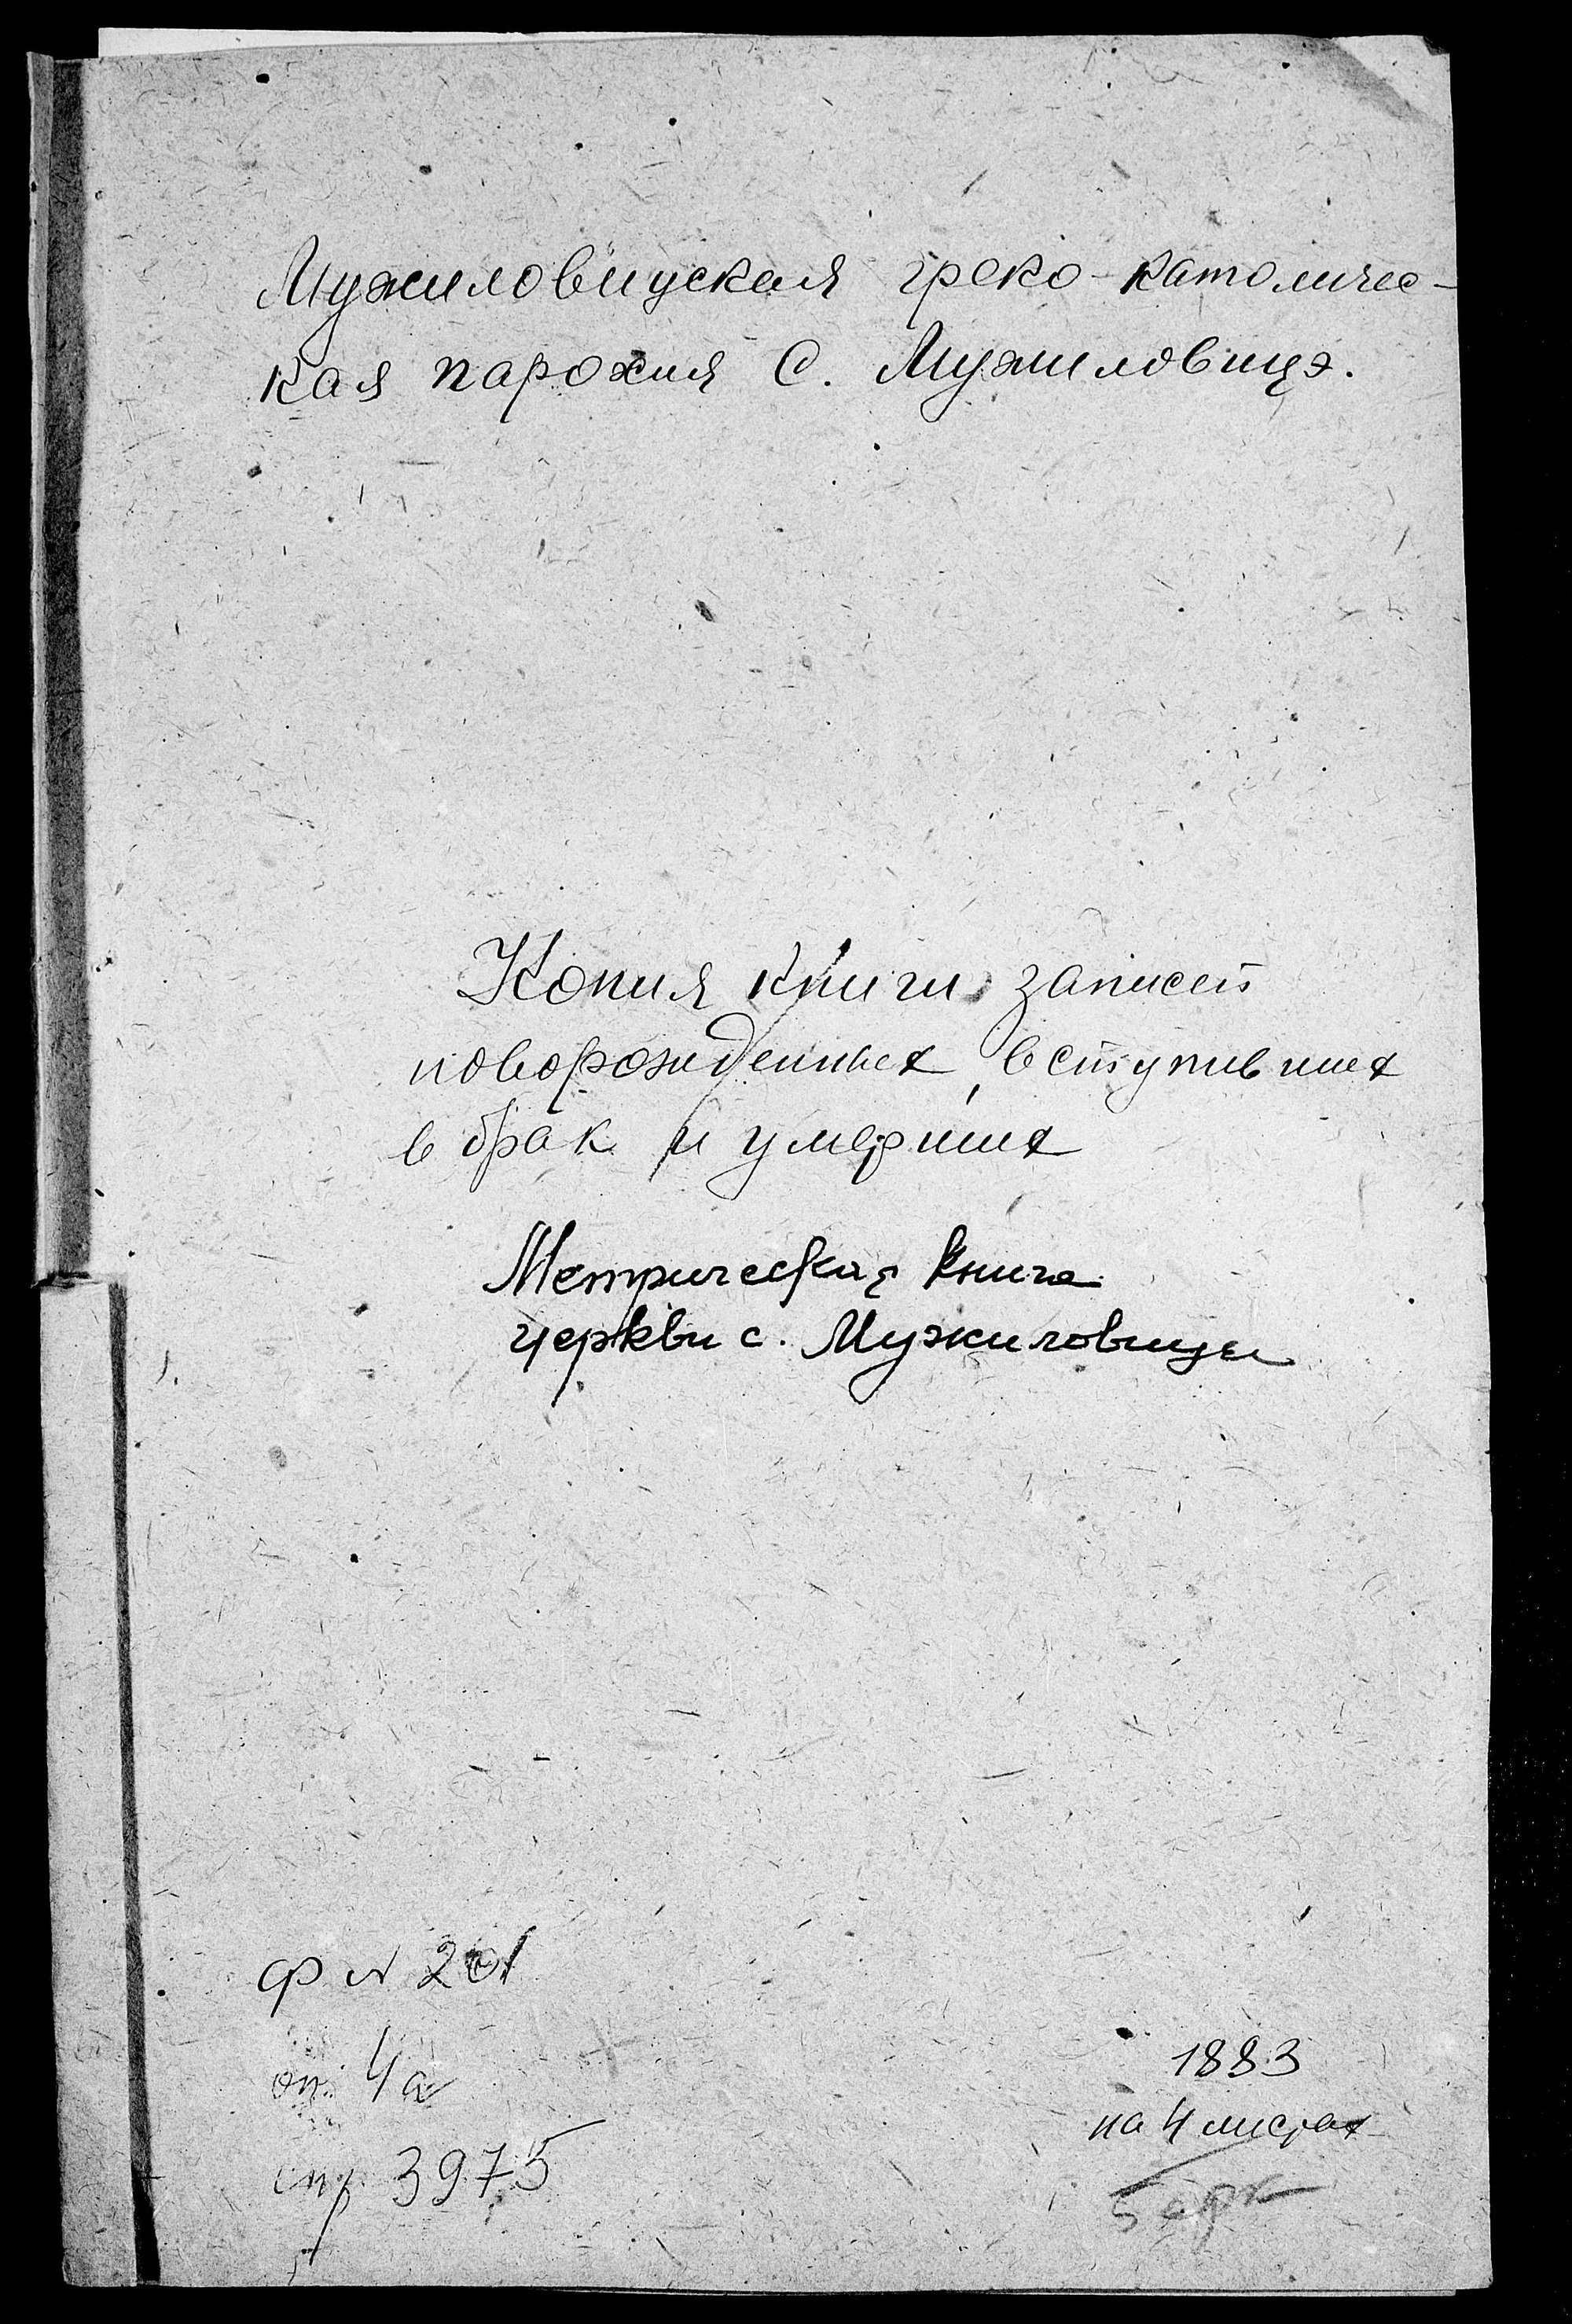 Мужиловицская греко-католичес-
кая парохия С. Мужиловицэ.
Копия книги записей
новорожденных, вступивших
в брак и умерших
Метрическая книга
церкви с. Мужиловицы
ф № 201
оп. 4а
спр 3975
1883
на 4 листах
5 арк